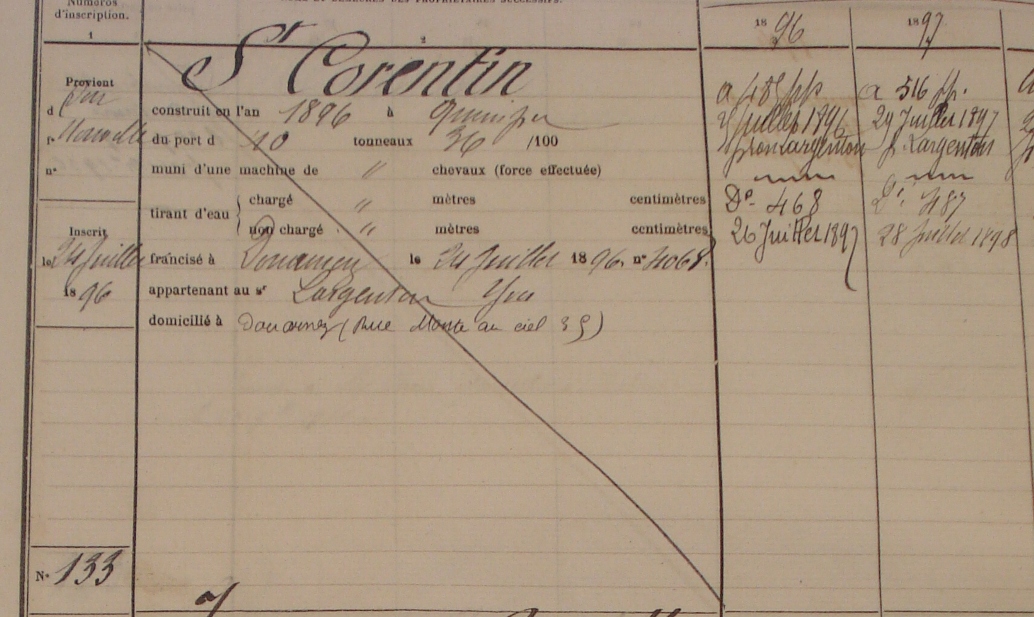 Numéros
d'inscription.
1
2
18 96
1897
Provient
d
No
n°
Inscrit
le 24 Juillet
18 96
N° 133
St Corentin
construit en l'an 1896 à Quimper
du port d 10 tonneaux 36 /100
muni d'une machine de " chevaux (force effectuée)
tirant d'eau { chargé " mètres centimètres
non chargé " mètres centimètres
francisé à Douarnen le 24 Juillet 1896. n° 4068.
appartenant au sr Largenton Yves
domicilié à Douarnez (Rue Monte au ciel 35)
a 485
Juillet 1896
Largenton
Do 468
26 Juillet 1897
a 516
29 Juillet 1897
Largenton
Do 487
28 Juillet 1898